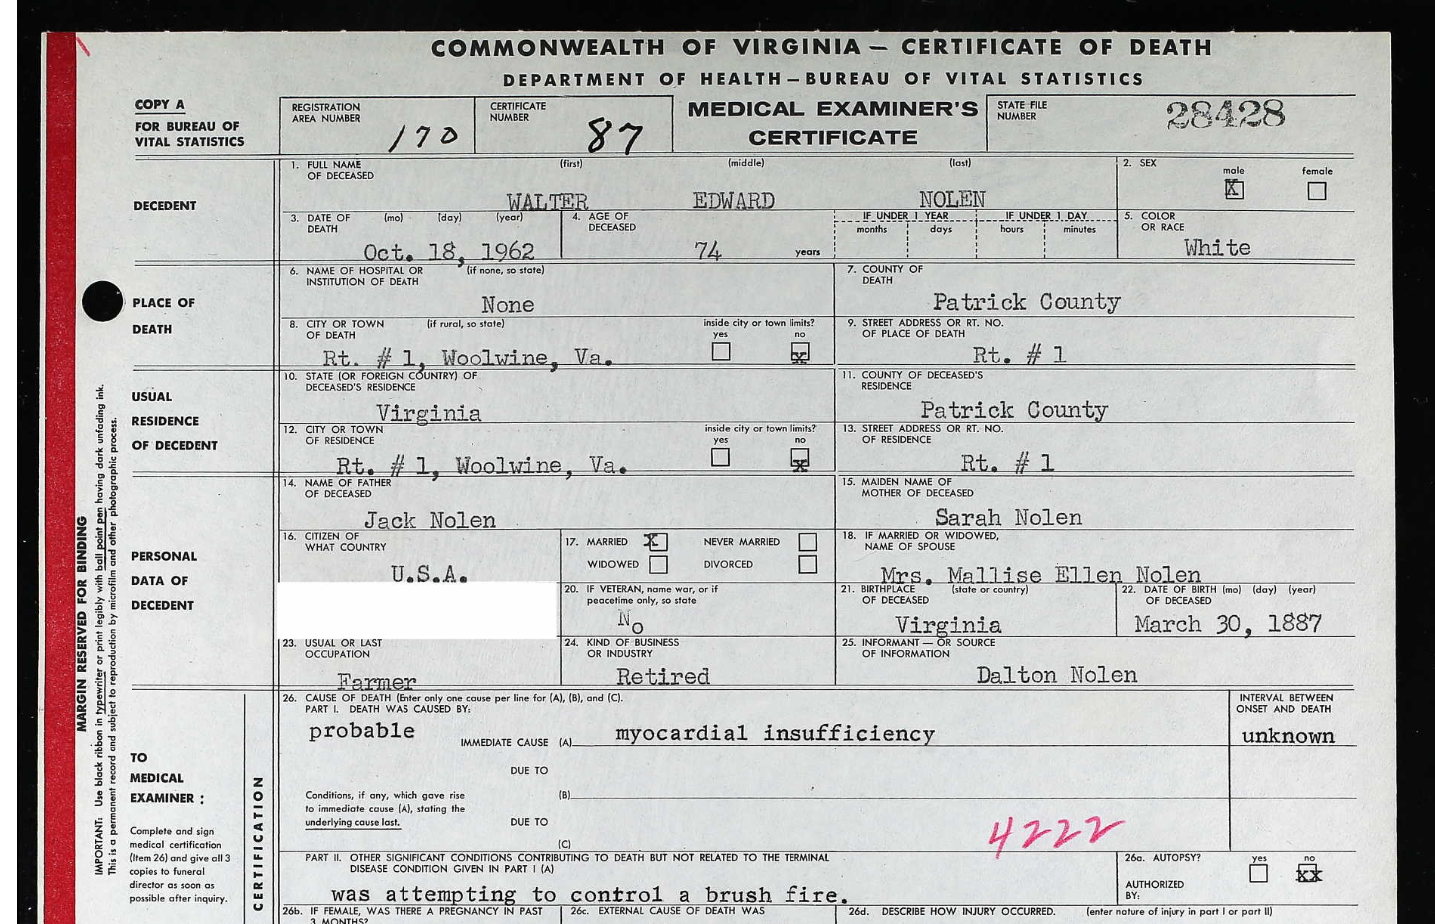 COMMONWEALTH OF VIRGINIA — CERTIFICATE OF DEATH
DEPARTMENT OF HEALTH—BUREAU OF VITAL STATISTICS
COPY A
FOR BUREAU OF
VITAL STATISTICS
REGISTRATION
AREA NUMBER
170
CERTIFICATE
NUMBER
87
MEDICAL EXAMINER'S
CERTIFICATE
STATE FILE
NUMBER
28428
DECEDENT
1. FULL NAME (first) (middle) (last)
OF DECEASED
WALTER EDWARD NOLEN
2. SEX
male female
X
3. DATE OF (mo) (day) (year)
DEATH
Oct. 18, 1962
4. AGE OF
DECEASED
74 years
IF UNDER 1 YEAR IF UNDER 1 DAY
months days hours minutes
5. COLOR
OR RACE
White
PLACE OF
DEATH
6. NAME OF HOSPITAL OR (if none, so state)
INSTITUTION OF DEATH
None
7. COUNTY OF
DEATH
Patrick County
8. CITY OR TOWN (if rural, so state)
OF DEATH
Rt. # 1, Woolwine, Va.
inside city or town limits?
yes no
x
9. STREET ADDRESS OR RT. NO.
OF PLACE OF DEATH
Rt. # 1
USUAL
RESIDENCE
OF DECEDENT
10. STATE (OR FOREIGN COUNTRY) OF
DECEASED'S RESIDENCE
Virginia
11. COUNTY OF DECEASED'S
RESIDENCE
Patrick County
12. CITY OR TOWN
OF RESIDENCE
Rt. # 1, Woolwine, Va.
inside city or town limits?
yes no
x
13. STREET ADDRESS OR RT. NO.
OF RESIDENCE
Rt. # 1
PERSONAL
DATA OF
DECEDENT
14. NAME OF FATHER
OF DECEASED
Jack Nolen
15. MAIDEN NAME OF
MOTHER OF DECEASED
Sarah Nolen
16. CITIZEN OF
WHAT COUNTRY
U.S.A.
17. MARRIED X NEVER MARRIED
WIDOWED DIVORCED
18. IF MARRIED OR WIDOWED,
NAME OF SPOUSE
Mrs. Mallise Ellen Nolen
20. IF VETERAN, name war, or if
peacetime only, so state
No
21. BIRTHPLACE (state or country)
OF DECEASED
Virginia
22. DATE OF BIRTH (mo) (day) (year)
OF DECEASED
March 30, 1887
23. USUAL OR LAST
OCCUPATION
Farmer
24. KIND OF BUSINESS
OR INDUSTRY
Retired
25. INFORMANT — OR SOURCE
OF INFORMATION
Dalton Nolen
MARGIN RESERVED FOR BINDING
IMPORTANT: Use black ribbon in typewriter or print legibly with ball point pen having dark unfading ink.
This is a permanent record and subject to reproduction by microfilm and other photographic process.
TO
MEDICAL
EXAMINER :
Complete and sign
medical certification
(Item 26) and give all 3
copies to funeral
director as soon as
possible after inquiry.
CERTIFICATION
26. CAUSE OF DEATH (Enter only one cause per line for (A), (B), and (C).
PART I. DEATH WAS CAUSED BY:
INTERVAL BETWEEN
ONSET AND DEATH
probable IMMEDIATE CAUSE (A) myocardial insufficiency unknown
DUE TO
Conditions, if any, which gave rise (B)
to immediate cause (A), stating the
underlying cause last. DUE TO
(C)
4222
PART II. OTHER SIGNIFICANT CONDITIONS CONTRIBUTING TO DEATH BUT NOT RELATED TO THE TERMINAL
DISEASE CONDITION GIVEN IN PART I (A)
was attempting to control a brush fire.
26a. AUTOPSY? yes no
xx
AUTHORIZED
BY:
26b. IF FEMALE, WAS THERE A PREGNANCY IN PAST
3 MONTHS?
26c. EXTERNAL CAUSE OF DEATH WAS
26d. DESCRIBE HOW INJURY OCCURRED. (enter nature of injury in part I or part II)